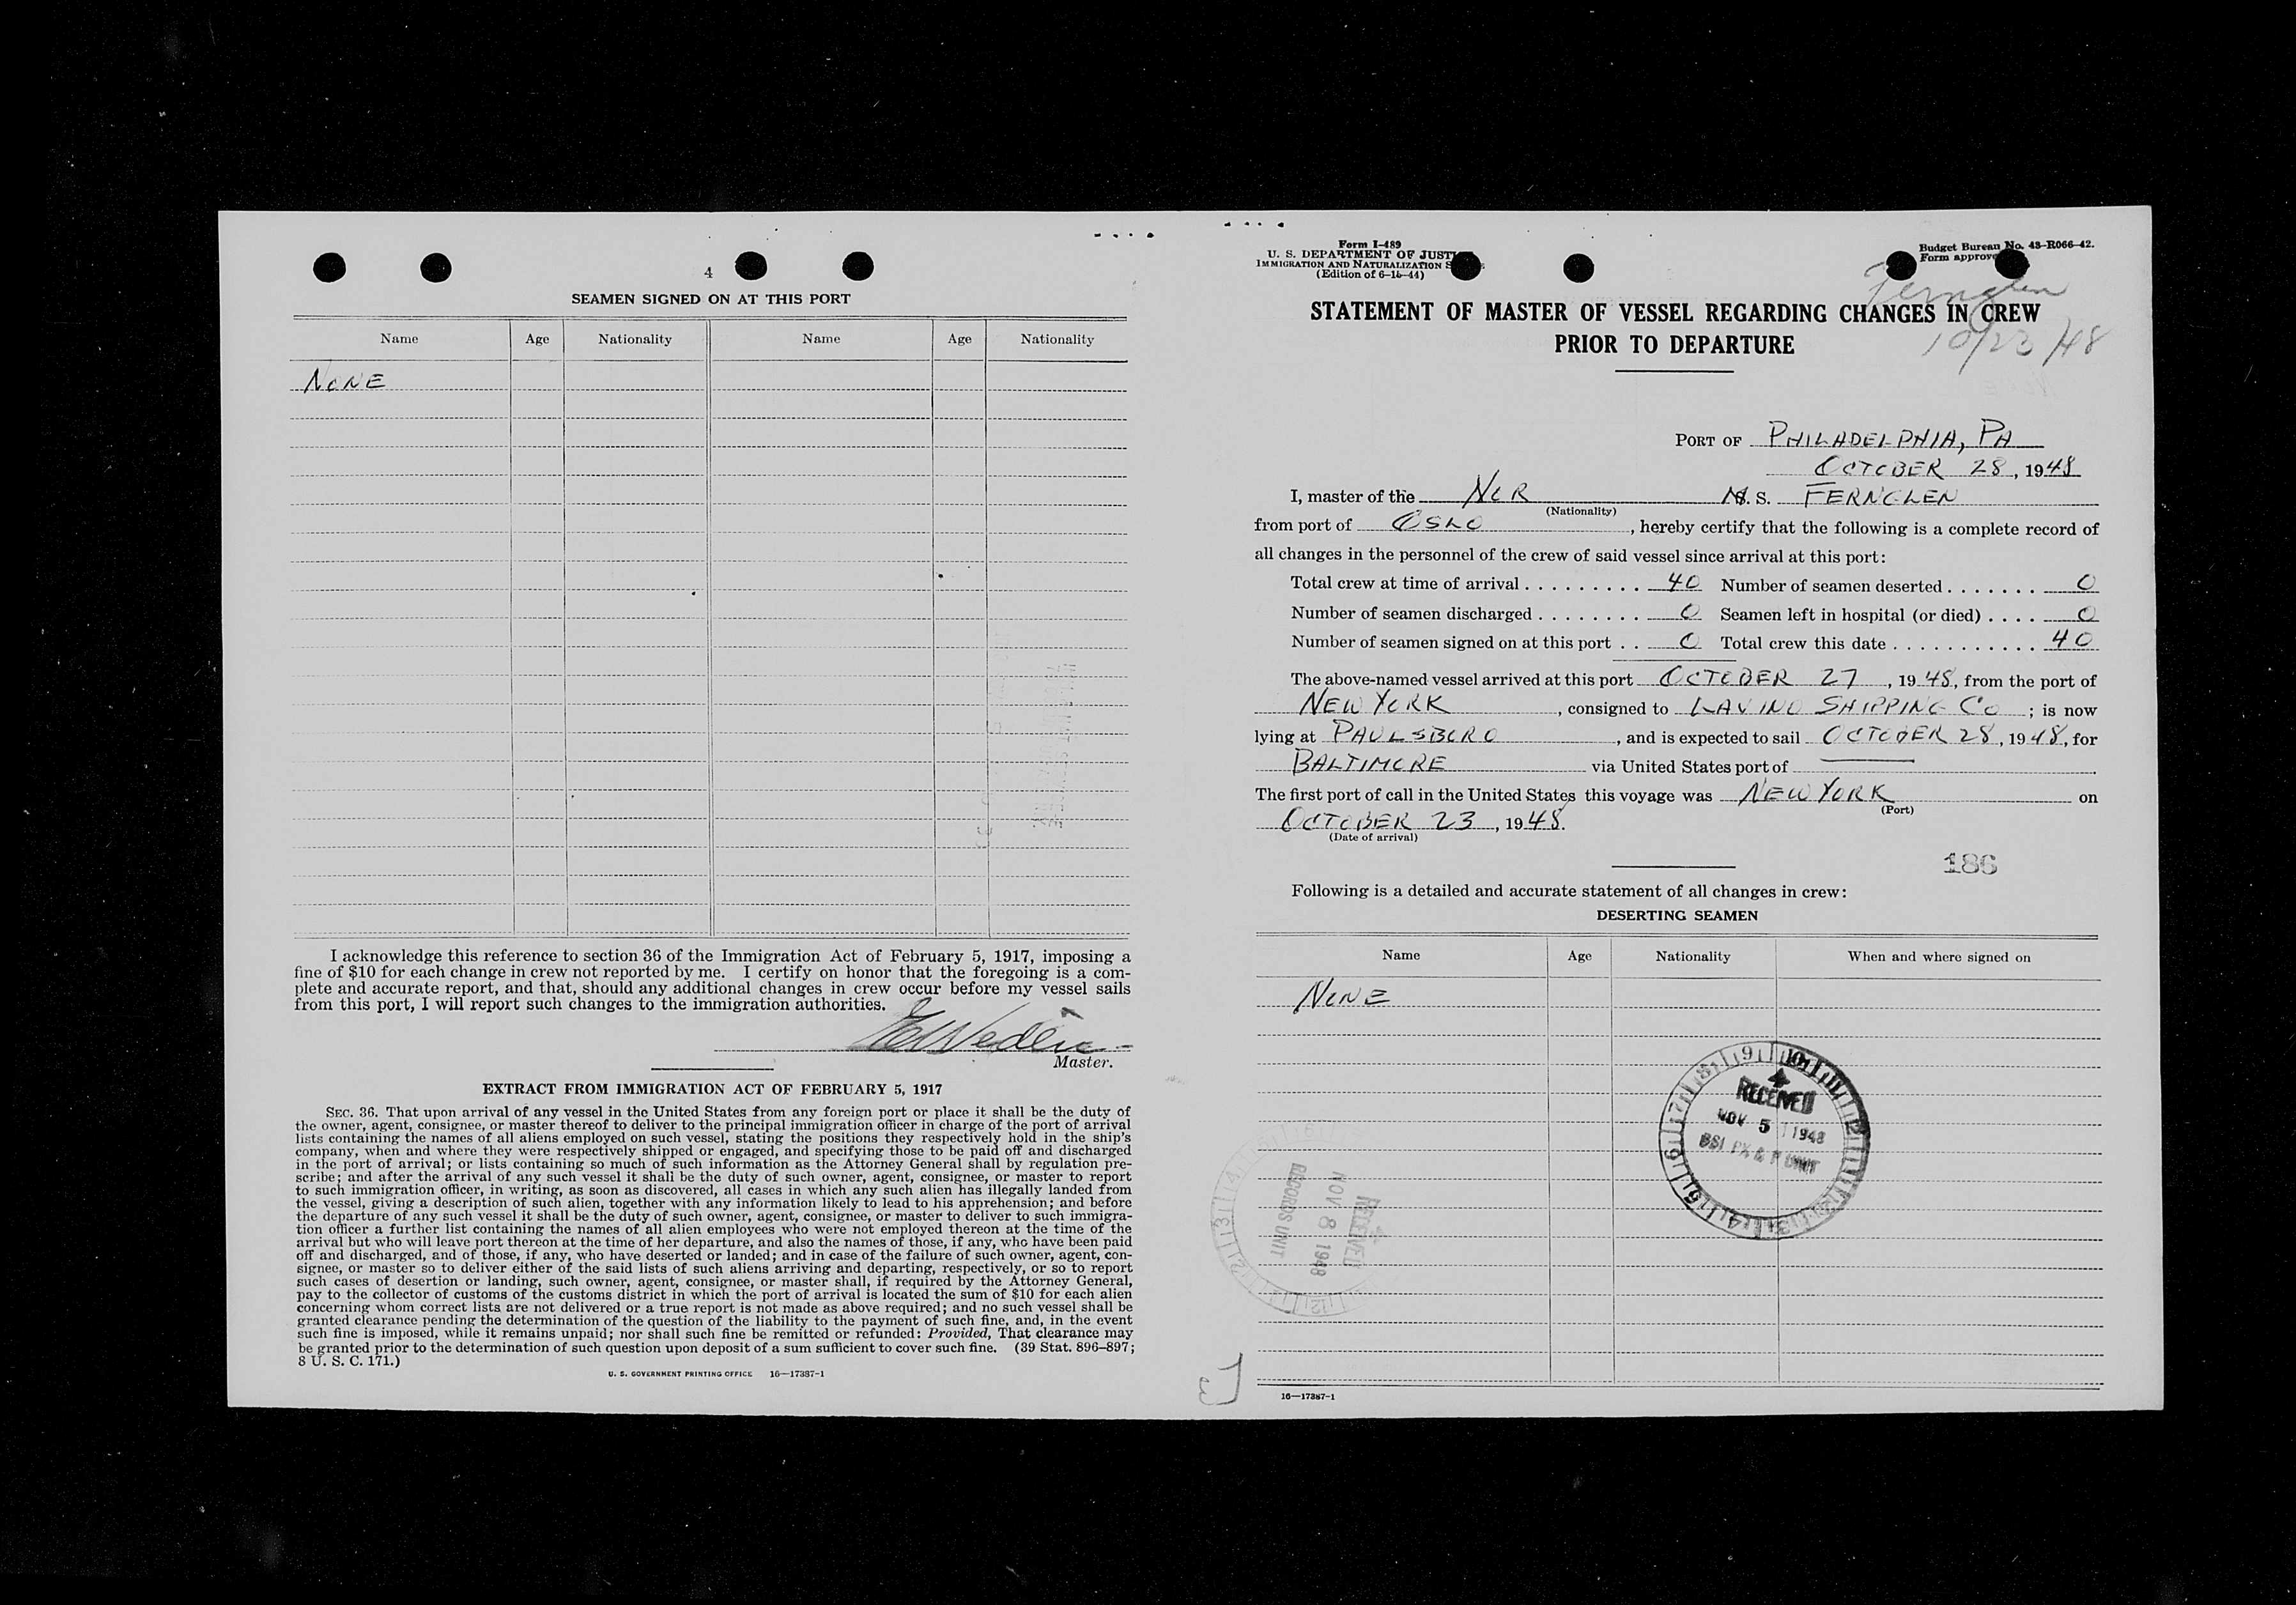 4
SEAMEN SIGNED ON AT THIS PORT
Name Age Nationality Name Age Nationality
NONE
I acknowledge this reference to section 36 of the Immigration Act of February 5, 1917, imposing a
fine of $10 for each change in crew not reported by me. I certify on honor that the foregoing is a com-
plete and accurate report, and that, should any additional changes in crew occur before my vessel sails
from this port, I will report such changes to the immigration authorities.
Master.
EXTRACT FROM IMMIGRATION ACT OF FEBRUARY 5, 1917
SEC. 36. That upon arrival of any vessel in the United States from any foreign port or place it shall be the duty of
the owner, agent, consignee, or master thereof to deliver to the principal immigration officer in charge of the port of arrival
lists containing the names of all aliens employed on such vessel, stating the positions they respectively hold in the ship's
company, when and where they were respectively shipped or engaged, and specifying those to be paid off and discharged
in the port of arrival; or lists containing so much of such information as the Attorney General shall by regulation pre-
scribe; and after the arrival of any such vessel it shall be the duty of such owner, agent, consignee, or master to report
to such immigration officer, in writing, as soon as discovered, all cases in which any such alien has illegally landed from
the vessel, giving a description of such alien, together with any information likely to lead to his apprehension; and before
the departure of any such vessel it shall be the duty of such owner, agent, consignee, or master to deliver to such immigra-
tion officer a further list containing the names of all alien employees who were not employed thereon at the time of the
arrival but who will leave port thereon at the time of her departure, and also the names of those, if any, who have been paid
off and discharged, and of those, if any, who have deserted or landed; and in case of the failure of such owner, agent, con-
signee, or master so to deliver either of the said lists of such aliens arriving and departing, respectively, or so to report
such cases of desertion or landing, such owner, agent, consignee, or master shall, if required by the Attorney General,
pay to the collector of customs of the customs district in which the port of arrival is located the sum of $10 for each alien
concerning whom correct lists are not delivered or a true report is not made as above required; and no such vessel shall be
granted clearance pending the determination of the question of the liability to the payment of such fine, and, in the event
such fine is imposed, while it remains unpaid; nor shall such fine be remitted or refunded: Provided, That clearance may
be granted prior to the determination of such question upon deposit of a sum sufficient to cover such fine. (39 Stat. 896-897;
8 U. S. C. 171.)
U. S. GOVERNMENT PRINTING OFFICE 16—17387-1
Form I-489
U. S. DEPARTMENT OF JUST
IMMIGRATION AND NATURALIZATION S
(Edition of 6-15-44)
Budget Bureau No. 43-R066-42.
Form approve
Fernglen
10/23/48
STATEMENT OF MASTER OF VESSEL REGARDING CHANGES IN CREW
PRIOR TO DEPARTURE
PORT OF PHILADELPHIA, PA
OCTOBER 28, 1948
I, master of the NOR M. S. FERNGLEN
(Nationality)
from port of OSLO, hereby certify that the following is a complete record of
all changes in the personnel of the crew of said vessel since arrival at this port:
Total crew at time of arrival 40 Number of seamen deserted 0
Number of seamen discharged 0 Seamen left in hospital (or died) 0
Number of seamen signed on at this port 0 Total crew this date 40
The above-named vessel arrived at this port OCTOBER 27, 1948, from the port of
NEW YORK, consigned to LAVINO SHIPPING CO; is now
lying at PAULSBORO, and is expected to sail OCTOBER 28, 1948, for
BALTIMORE via United States port of
The first port of call in the United States this voyage was NEW YORK on
(Port)
OCTOBER 23, 1948.
(Date of arrival)
186
Following is a detailed and accurate statement of all changes in crew:
DESERTING SEAMEN
Name Age Nationality When and where signed on
NONE
RECEIVED
NOV 5 1948
BSI PX & P UNIT
RECEIVED
NOV 8 1948
RECORDS UNIT
16—17387-1